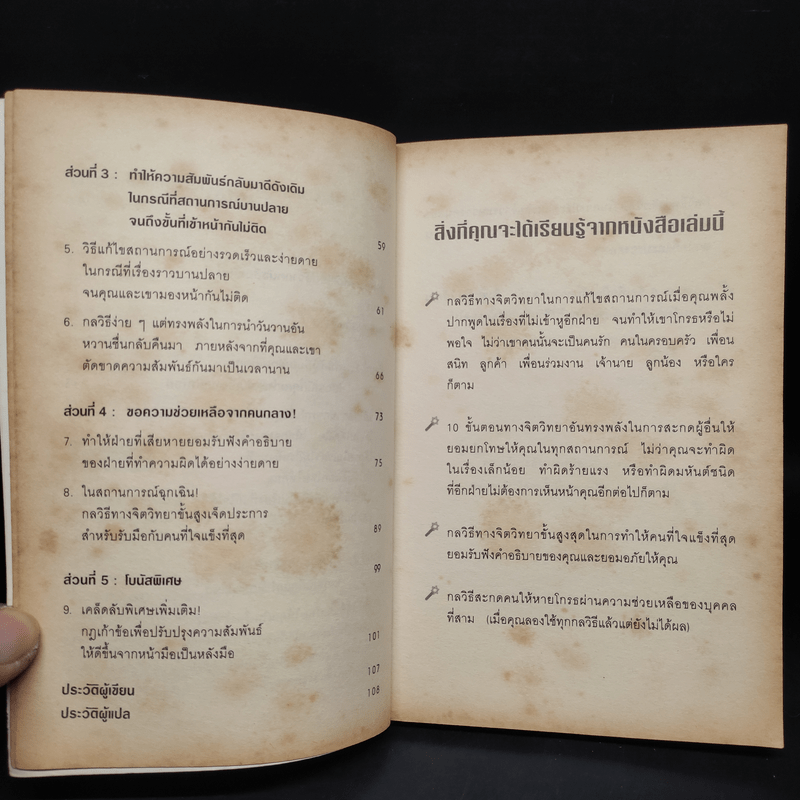 ส่วนที่ 3 : ทำให้ความสัมพันธ์กลับมาดีดังเดิม
ในกรณีที่สถานการณ์บานปลาย
จนถึงขั้นที่เข้าหน้ากันไม่ติด 59
5. วิธีแก้ไขสถานการณ์อย่างรวดเร็วและง่ายดาย
ในกรณีที่เรื่องราวบานปลาย
จนคุณและเขามองหน้ากันไม่ติด 61
6. กลวิธีง่าย ๆ แต่ทรงพลังในการนำวันวานอัน
หวานชื่นกลับคืนมา ภายหลังจากที่คุณและเขา
ตัดขาดความสัมพันธ์กันมาเป็นเวลานาน 66
ส่วนที่ 4 : ขอความช่วยเหลือจากคนกลาง! 73
7. ทำให้ฝ่ายที่เสียหายยอมรับฟังคำอธิบาย
ของฝ่ายที่ทำความผิดได้อย่างง่ายดาย 75
8. ในสถานการณ์ฉุกเฉิน!
กลวิธีทางจิตวิทยาขั้นสูงเจ็ดประการ
สำหรับรับมือกับคนที่ใจแข็งที่สุด 89
ส่วนที่ 5 : โบนัสพิเศษ 99
9. เคล็ดลับพิเศษเพิ่มเติม!
กฎเก้าข้อเพื่อปรับปรุงความสัมพันธ์
ให้ดีขึ้นจากหน้ามือเป็นหลังมือ 101
ประวัติผู้เขียน 107
ประวัติผู้แปล 108
สิ่งที่คุณจะได้เรียนรู้จากหนังสือเล่มนี้
กลวิธีทางจิตวิทยาในการแก้ไขสถานการณ์เมื่อคุณพลั้ง
ปากพูดในเรื่องที่ไม่เข้าหูอีกฝ่าย จนทำให้เขาโกรธหรือไม่
พอใจ ไม่ว่าเขาคนนั้นจะเป็นคนรัก คนในครอบครัว เพื่อน
สนิท ลูกค้า เพื่อนร่วมงาน เจ้านาย ลูกน้อง หรือใคร
ก็ตาม
10 ขั้นตอนทางจิตวิทยาอันทรงพลังในการสะกดผู้อื่นให้
ยอมยกโทษให้คุณในทุกสถานการณ์ ไม่ว่าคุณจะทำผิด
ในเรื่องเล็กน้อย ทำผิดร้ายแรง หรือทำผิดมหันต์ชนิด
ที่อีกฝ่ายไม่ต้องการเห็นหน้าคุณอีกต่อไปก็ตาม
กลวิธีทางจิตวิทยาขั้นสูงสุดในการทำให้คนที่ใจแข็งที่สุด
ยอมรับฟังคำอธิบายของคุณและยอมอภัยให้คุณ
กลวิธีสะกดคนให้หายโกรธผ่านความช่วยเหลือของบุคคล
ที่สาม (เมื่อคุณลองใช้ทุกกลวิธีแล้วแต่ยังไม่ได้ผล)